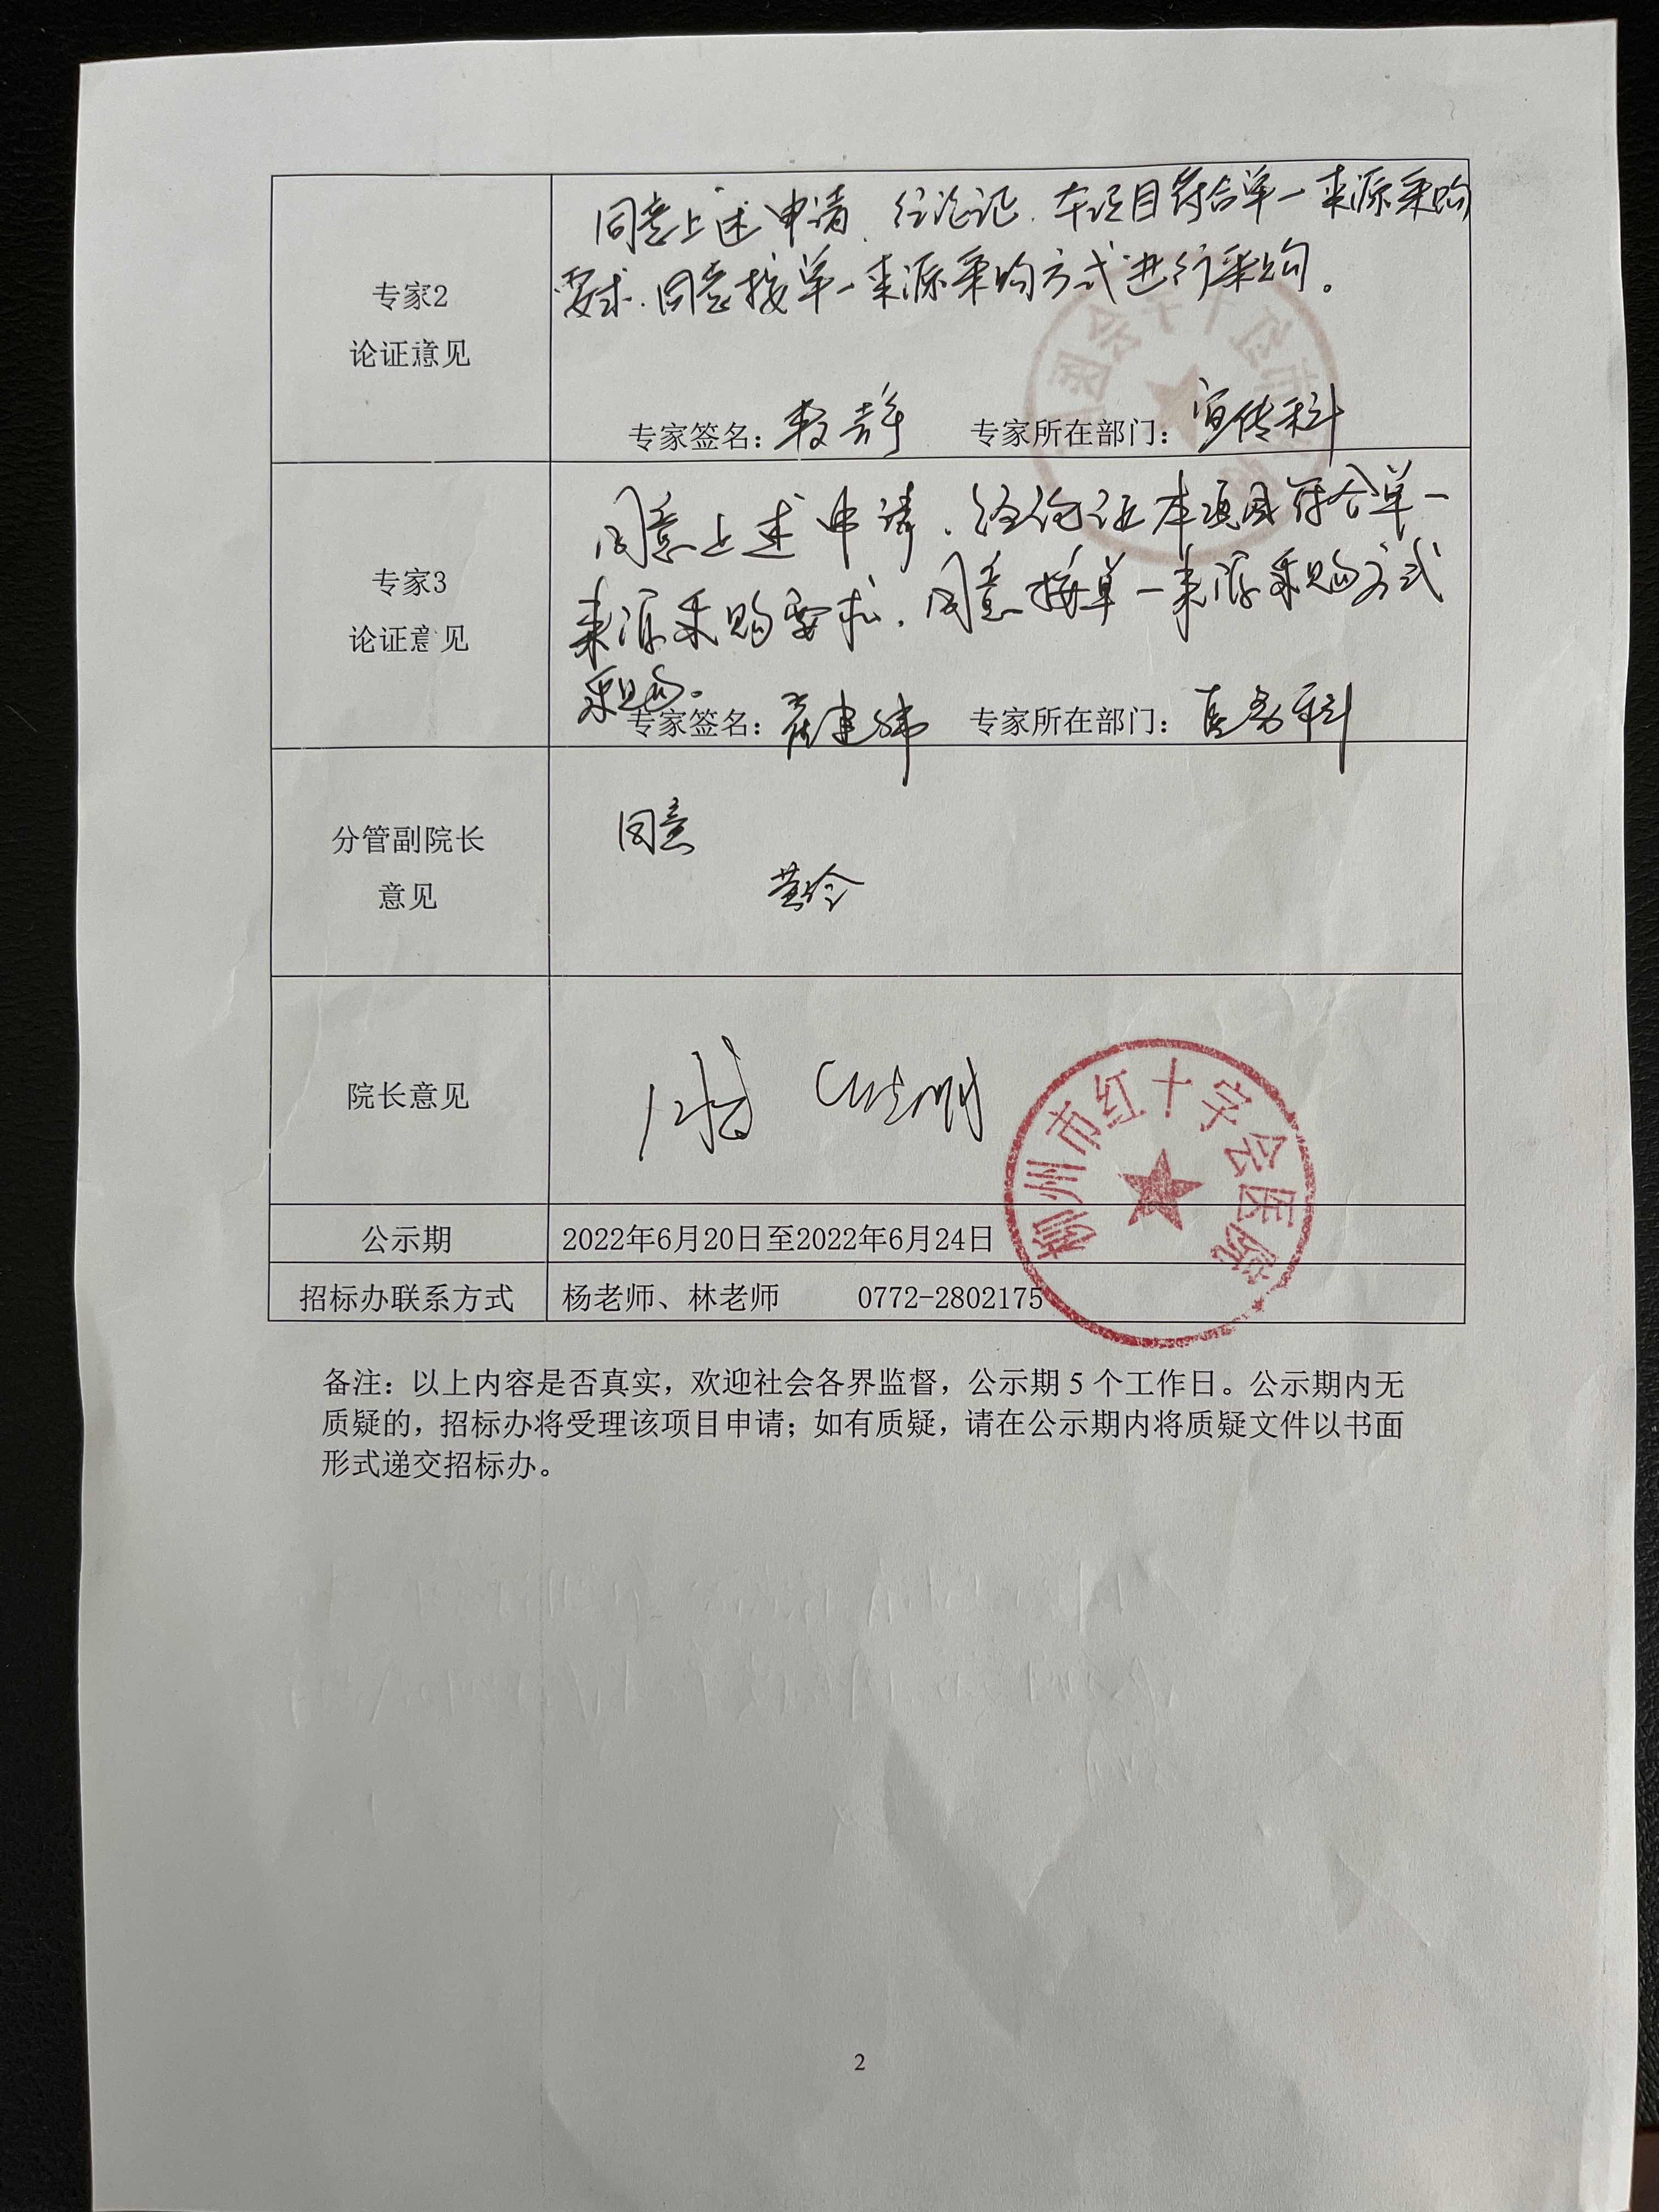 同意上述申请,经论证,本项目符合单一来源采购
专家2
论证意见
要求,同意按单一来源采购方式进行采购。
专家签名: 专家所在部门:宣传科
同意上述申请,经论证本项目符合单一
专家3
论证意见
来源采购要求,同意按单一来源采购方式
采购。
专家签名: 建 专家所在部门:医务科
分管副院长
意见
同意
黄玲
院长意见
同意
柳州市红十字会医院
公示期
2022年6月20日至2022年6月24日
招标办联系方式
杨老师、林老师 0772-2802175
备注:以上内容是否真实,欢迎社会各界监督,公示期5个工作日。公示期内无
质疑的,招标办将受理该项目申请;如有质疑,请在公示期内将质疑文件以书面
形式递交招标办。
2